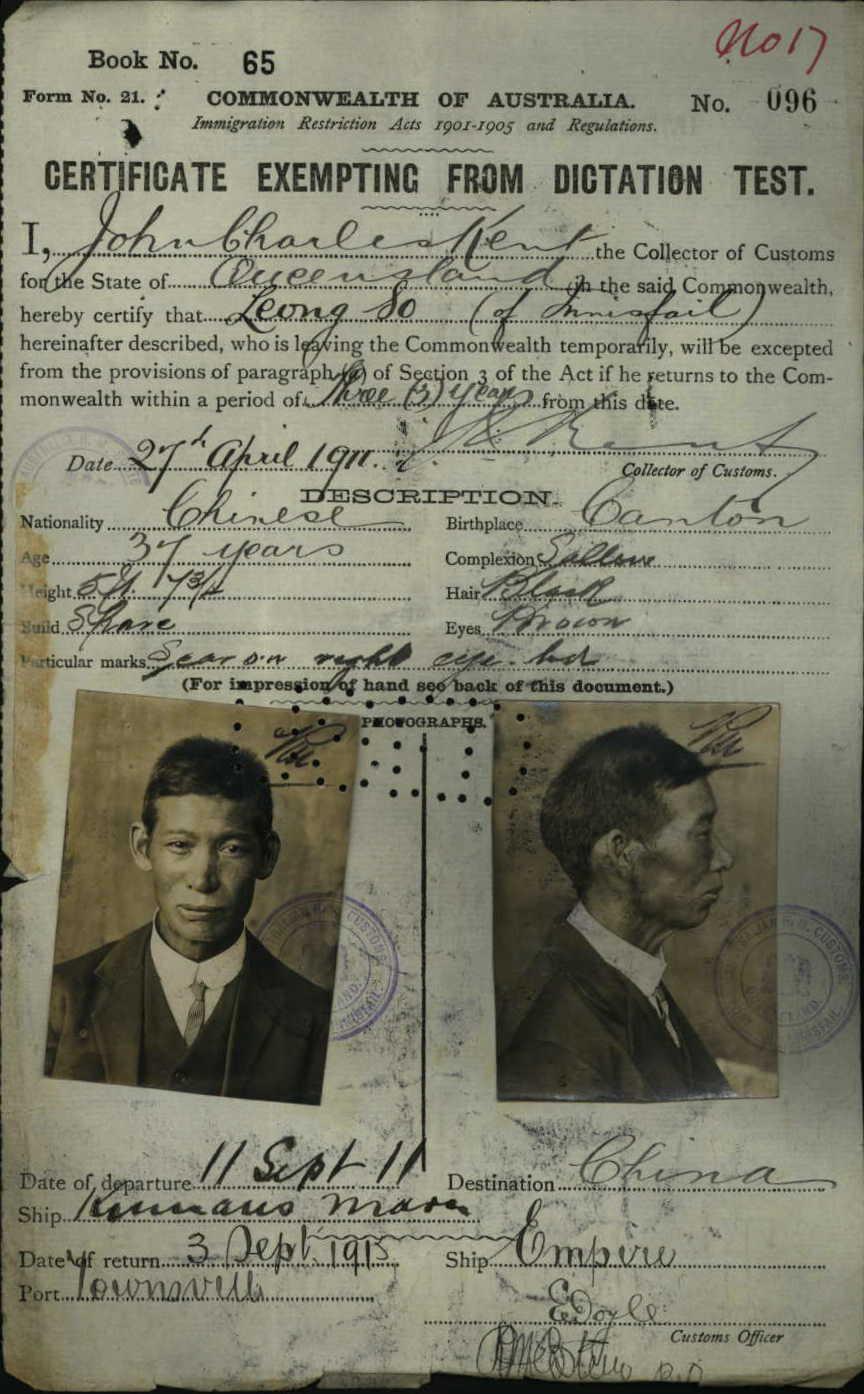 No 17
Book No. 65
Form No. 21. COMMONWEALTH OF AUSTRALIA. No. 096
Immigration Restriction Acts 1901-1905 and Regulations.
CERTIFICATE EXEMPTING FROM DICTATION TEST.
I, John Charles Kent the Collector of Customs
for the State of Queensland in the said Commonwealth,
hereby certify that Leong So (of Innisfail)
hereinafter described, who is leaving the Commonwealth temporarily, will be excepted
from the provisions of paragraph of Section 3 of the Act if he returns to the Com-
monwealth within a period of Three (3) years from this date.
Date 27th April 1911. Kent
Collector of Customs.
DESCRIPTION.
Nationality Chinese Birthplace Canton
Age 37 years Complexion Sallow
Height 5 ft 7 3/4 Hair Black
Build Spare Eyes Brown
Particular marks Scar on right eye
(For impression of hand see back of this document.)
PHOTOGRAPHS.
CUSTOMS
CUSTOMS
Date of departure 11 Sept 11 Destination China
Ship Kumano Maru
Date of return 3 Sept. 1913 Ship Empire
Port Townsville
E Doyle
Customs Officer